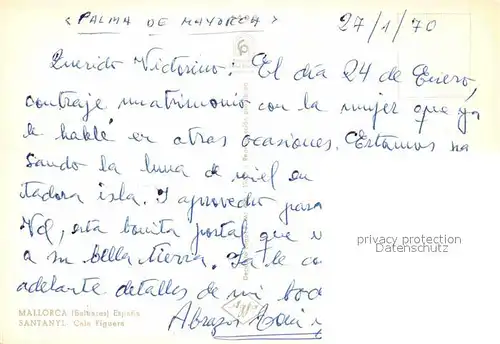 < PALMA DE MAYORCA >
27/1/70
Querido Victorino: El día 24 de Enero,
contraje matrimonio con la mujer que ya
le hablé en otras ocasiones. Estamos pa
sando la luna de miel en
tadora isla. Y aprovecho para
Vd, esta bonita postal que
a su bella tierra. Ya le co
adelante detalles de mi bod
Abrazos
privacy protection
Datenschutz
MALLORCA (Baleares) España
SANTANYI. Cala Figuera